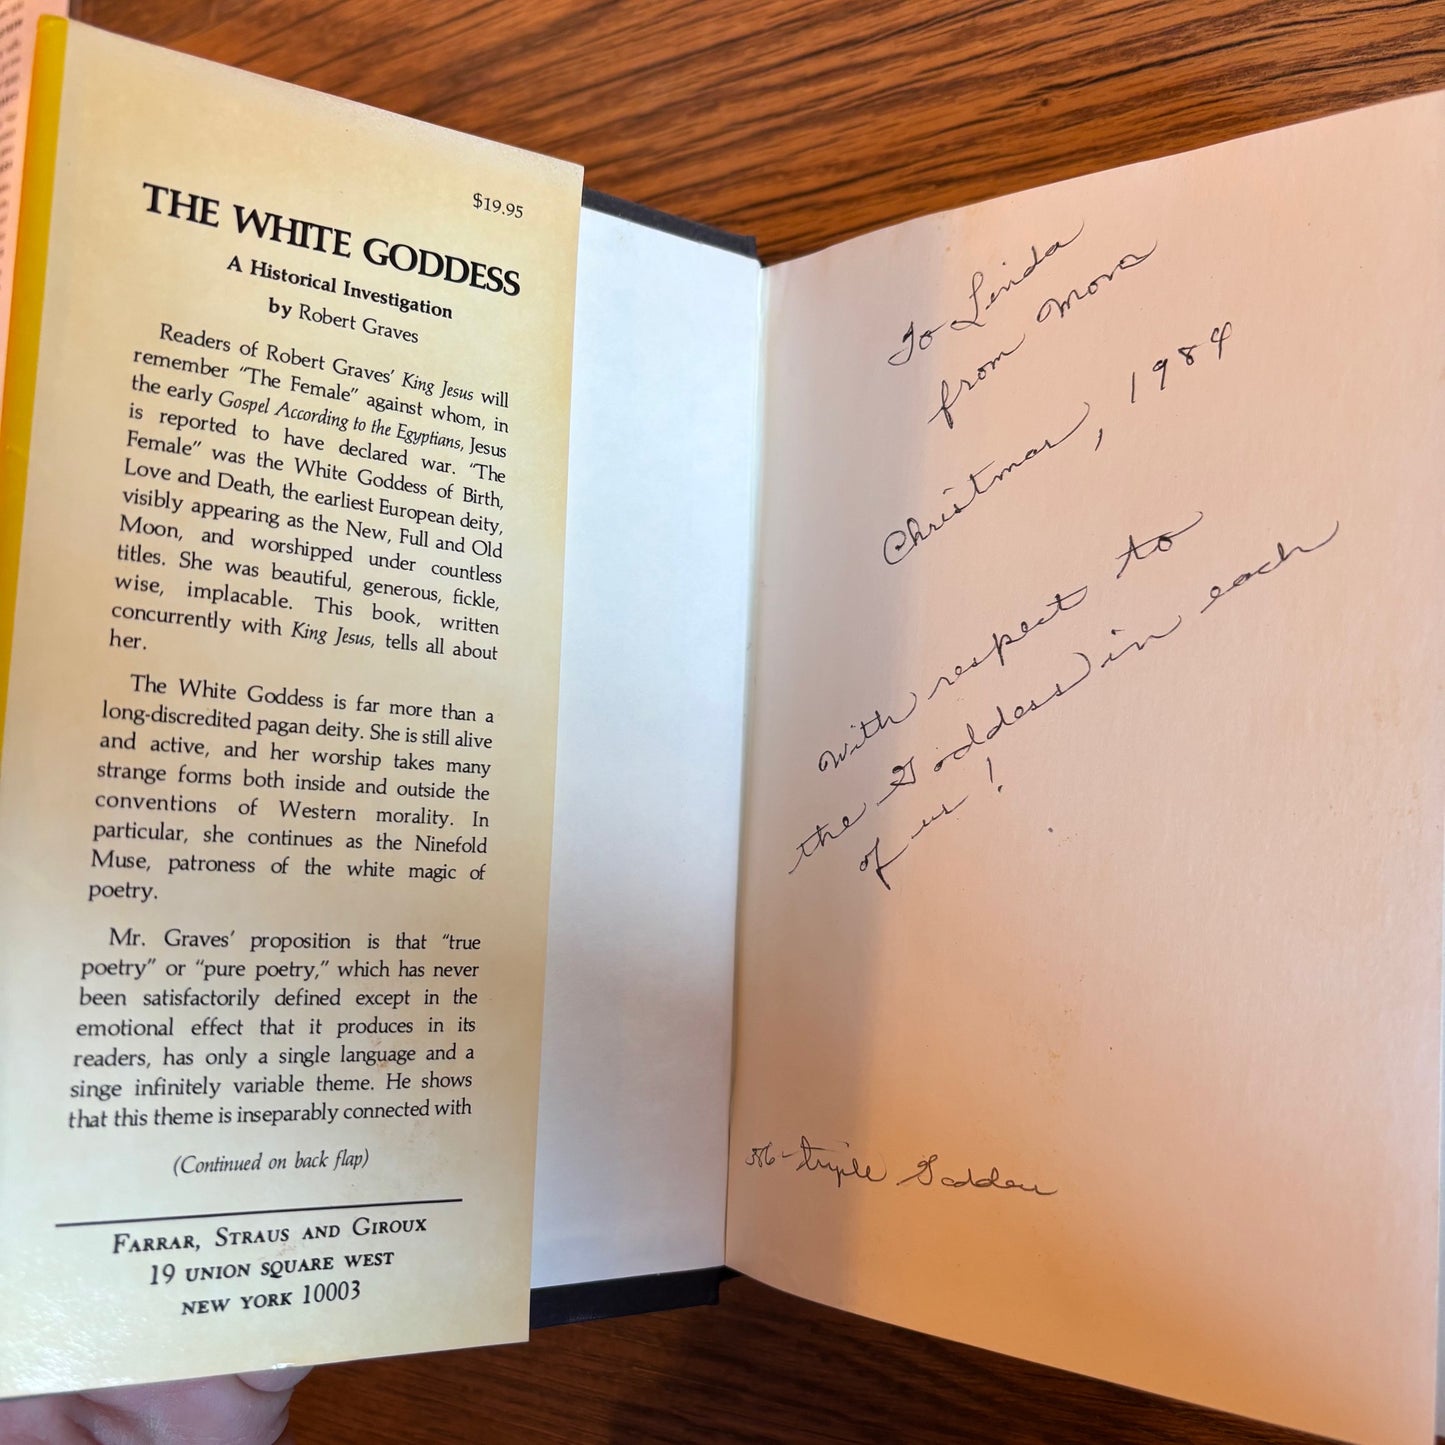 $19.95
THE WHITE GODDESS
A Historical Investigation
by Robert Graves
Readers of Robert Graves' King Jesus will
remember "The Female" against whom, in
the early Gospel According to the Egyptians, Jesus
is reported to have declared war. "The
Female" was the White Goddess of Birth,
Love and Death, the earliest European deity,
visibly appearing as the New, Full and Old
Moon, and worshipped under countless
titles. She was beautiful, generous, fickle,
wise, implacable. This book, written
concurrently with King Jesus, tells all about
her.
The White Goddess is far more than a
long-discredited pagan deity. She is still alive
and active, and her worship takes many
strange forms both inside and outside the
conventions of Western morality. In
particular, she continues as the Ninefold
Muse, patroness of the white magic of
poetry.
Mr. Graves' proposition is that "true
poetry" or "pure poetry," which has never
been satisfactorily defined except in the
emotional effect that it produces in its
readers, has only a single language and a
singe infinitely variable theme. He shows
that this theme is inseparably connected with
(Continued on back flap)
FARRAR, STRAUS AND GIROUX
19 UNION SQUARE WEST
NEW YORK 10003
To Linda
from Mora
Christmas, 1984
With respect to
the Goddess in each
of us!
386-triple Goddess